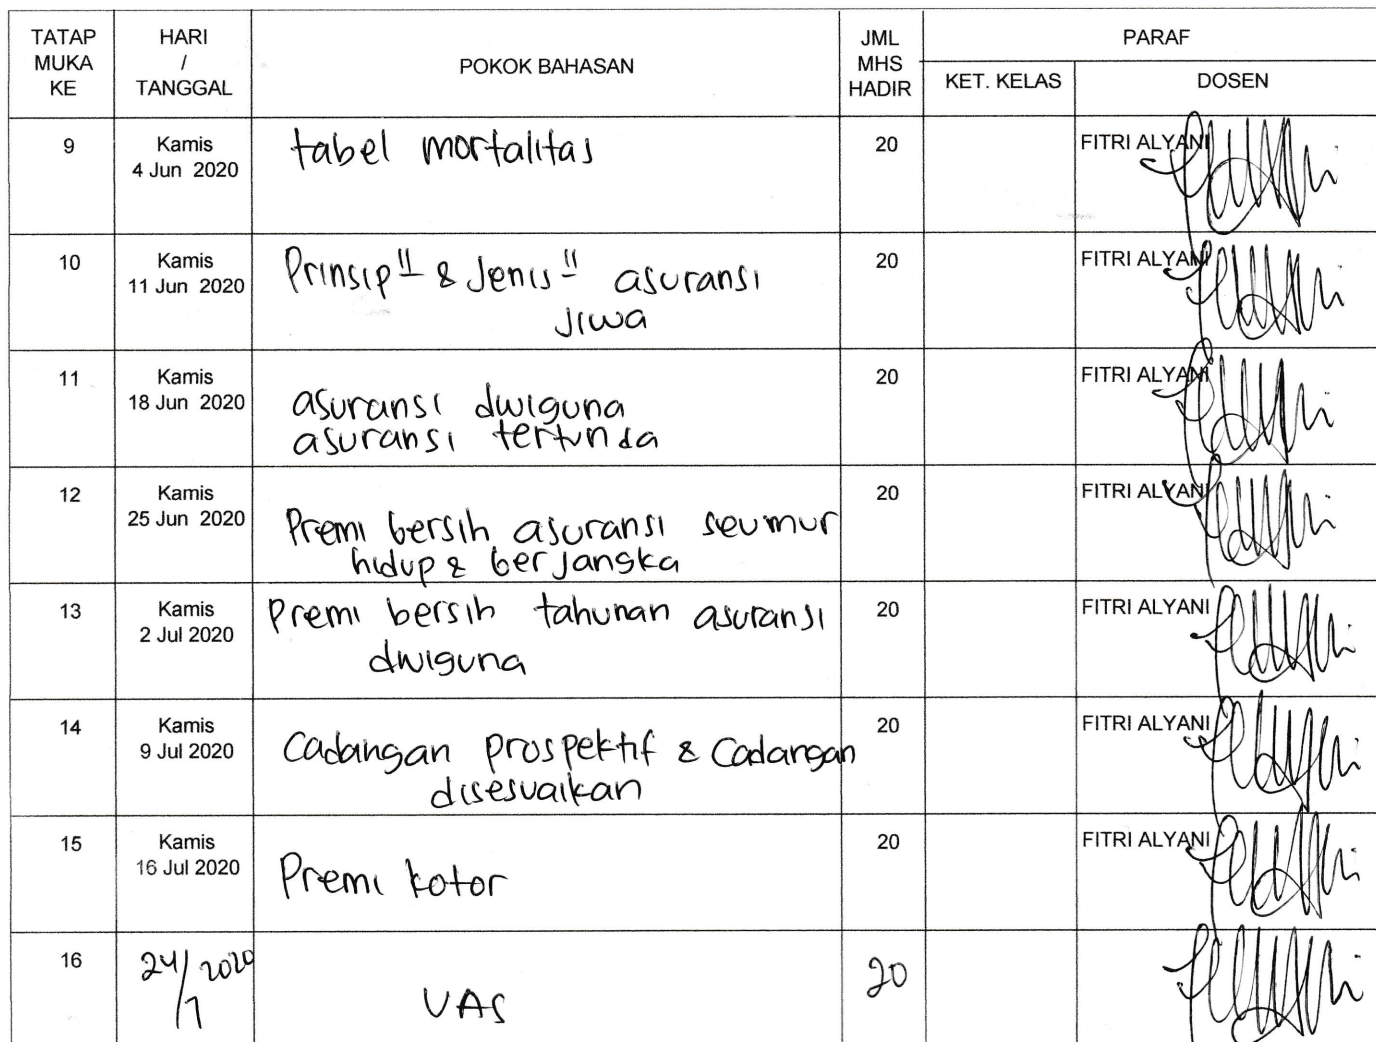 TATAP MUKA KE
HARI / TANGGAL
POKOK BAHASAN
JML MHS HADIR
PARAF
KET. KELAS
DOSEN
9
Kamis
4 Jun 2020
tabel mortalitas
20
FITRI ALYANI
10
Kamis
11 Jun 2020
Prinsip" & Jenis" asuransi
jiwa
20
FITRI ALYANI
11
Kamis
18 Jun 2020
asuransi dwiguna
asuransi tertunda
20
FITRI ALYANI
12
Kamis
25 Jun 2020
Premi bersih asuransi seumur
hidup & berjangka
20
FITRI ALYANI
13
Kamis
2 Jul 2020
Premi bersih tahunan asuransi
dwiguna
20
FITRI ALYANI
14
Kamis
9 Jul 2020
Cadangan prospektif & Cadangan
disesuaikan
20
FITRI ALYANI
15
Kamis
16 Jul 2020
Premi kotor
20
FITRI ALYANI
16
24/7 2020
UAS
20